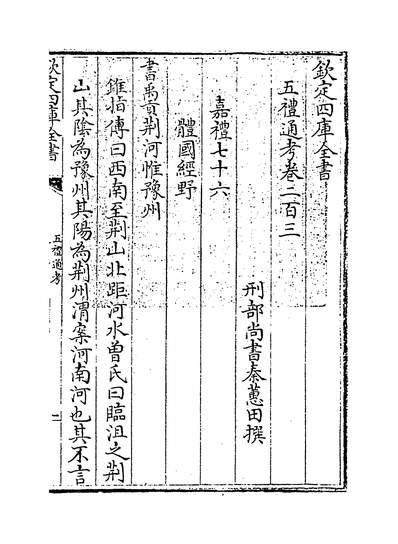 欽定四庫全書
五禮通考卷二百三
刑部尚書秦蕙田撰
嘉禮七十六
體國經野
書禹貢荆河惟豫州
錐指傳曰西南至荆山北距河水曽氏曰臨沮之荆
山其陰為豫州其陽為荆州渭案河南河也其不言
欽定四庫全書
五禮通考